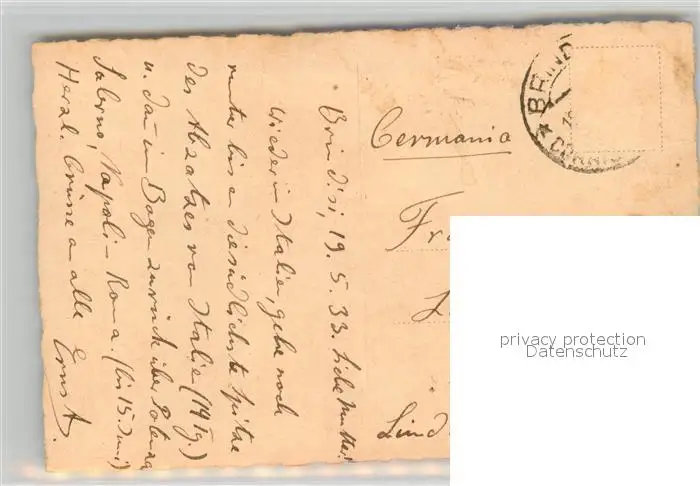 Brindisi, 19. 5. 33. Liebe Mutter!
Wieder in Italien, gehe noch
runter bis an die südlichste Spitze
des Absatzes von Italien (14 Tg.)
u. dann in Bogen zurück über Potenza
Salerno, Napoli - Roma. (bis 15. Juni)
Herzl. Grüsse an alle Ernst.
BRIND
CORRIS
Germania
Fr
Lind
privacy protection
Datenschutz